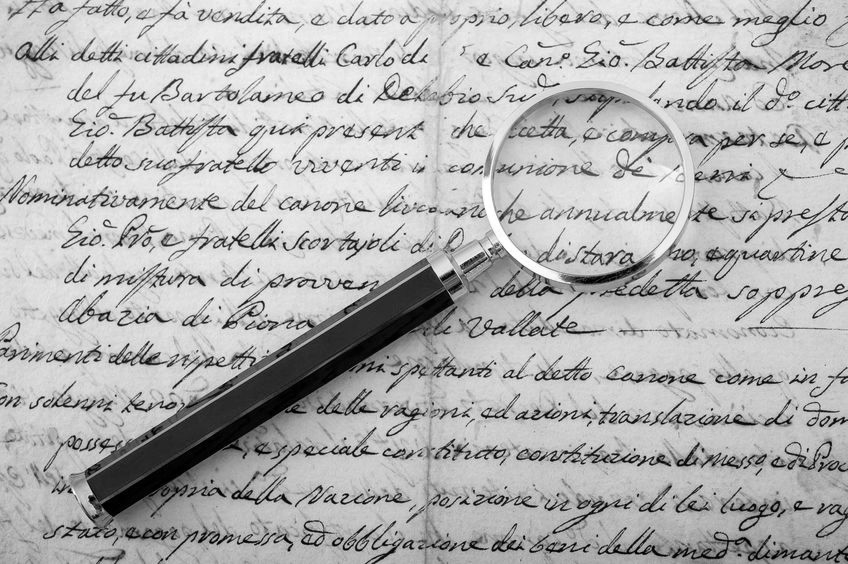 Ha fatto, e fà vendita, e dato a proprio, libero, e come meglio
Alli detti cittadini fratelli Carlo de e Canº. Gio. Battista
del fu Bartolomeo di il dº. citt
Gio. Battista qui present che accetta, e compra per se, e
detto suo fratello viventi in comunione de beni
Nominativamente del canone che annualmente si presta
Gio. Prõ, e fratelli di
di mistura di proven della predetta soppre
Abazia di Piona di Vallate
Parimenti delle rispetti spettanti al detto canone come in
delle ragioni, ed azioni, translazione di dom
possess e speciale constituto, constituzione di messo, e di Proc
propria della Nazione, posizione in ogni di lei luogo, e rag
stato, e con promessa, ed obbligazione dei beni della medª. dimante